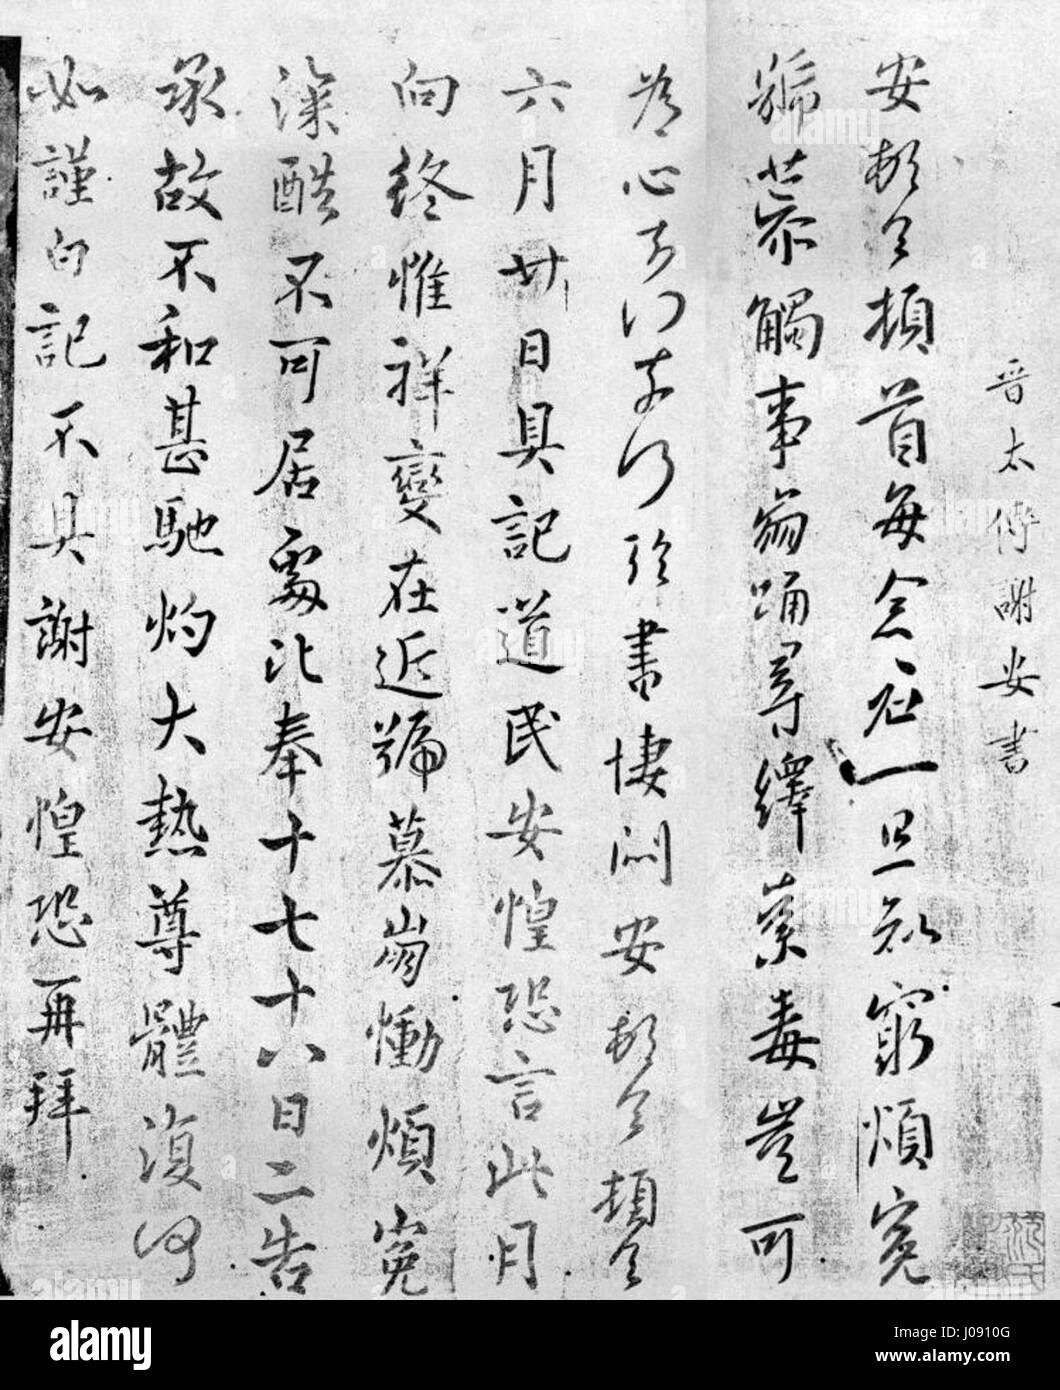 晉太傅謝安書
安頓首頓首每念君一旦知窮煩冤
號慕觸事崩踴尋繹荼毒豈可
為心奈何奈何臨書悽悶安頓首頓首
六月廿日具記道民安惶恐言此月
向終惟祥變在近號慕崩慟煩冤
深酷不可居處比奉十七十八日二告
承故不和甚馳灼大熱尊體復何
如謹白記不具謝安惶恐再拜
alamy
Image ID: J0910G
www.alamy.com